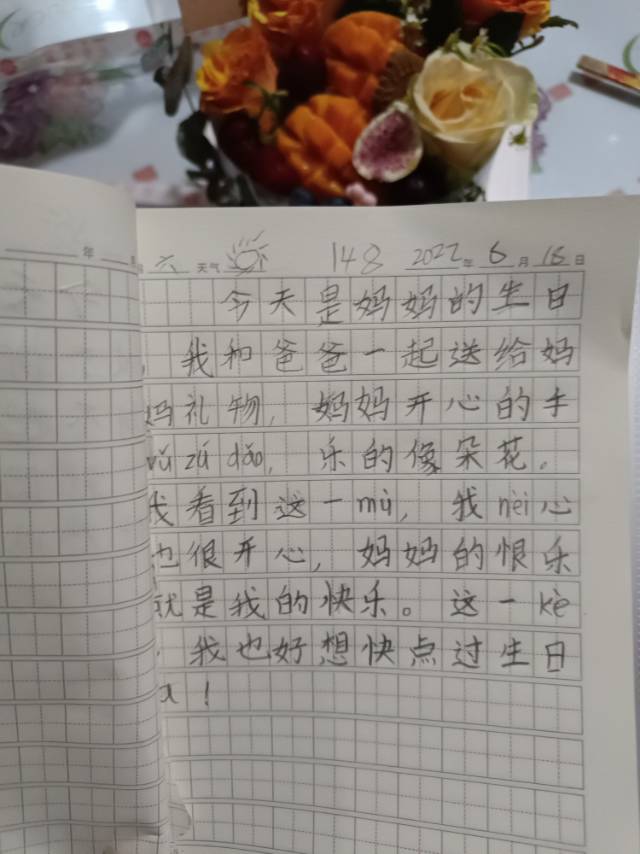 年
六 天气 148 2022年 6月 18日
今天是妈妈的生日
, 我和爸爸一起送给妈
妈礼物, 妈妈开心的手
wǔ zú dǎo, 乐的像朵花。
我看到这一mù, 我nèi心
也很开心, 妈妈的恨乐
就是我的快乐。这一kè
, 我也好想快点过生日
a!